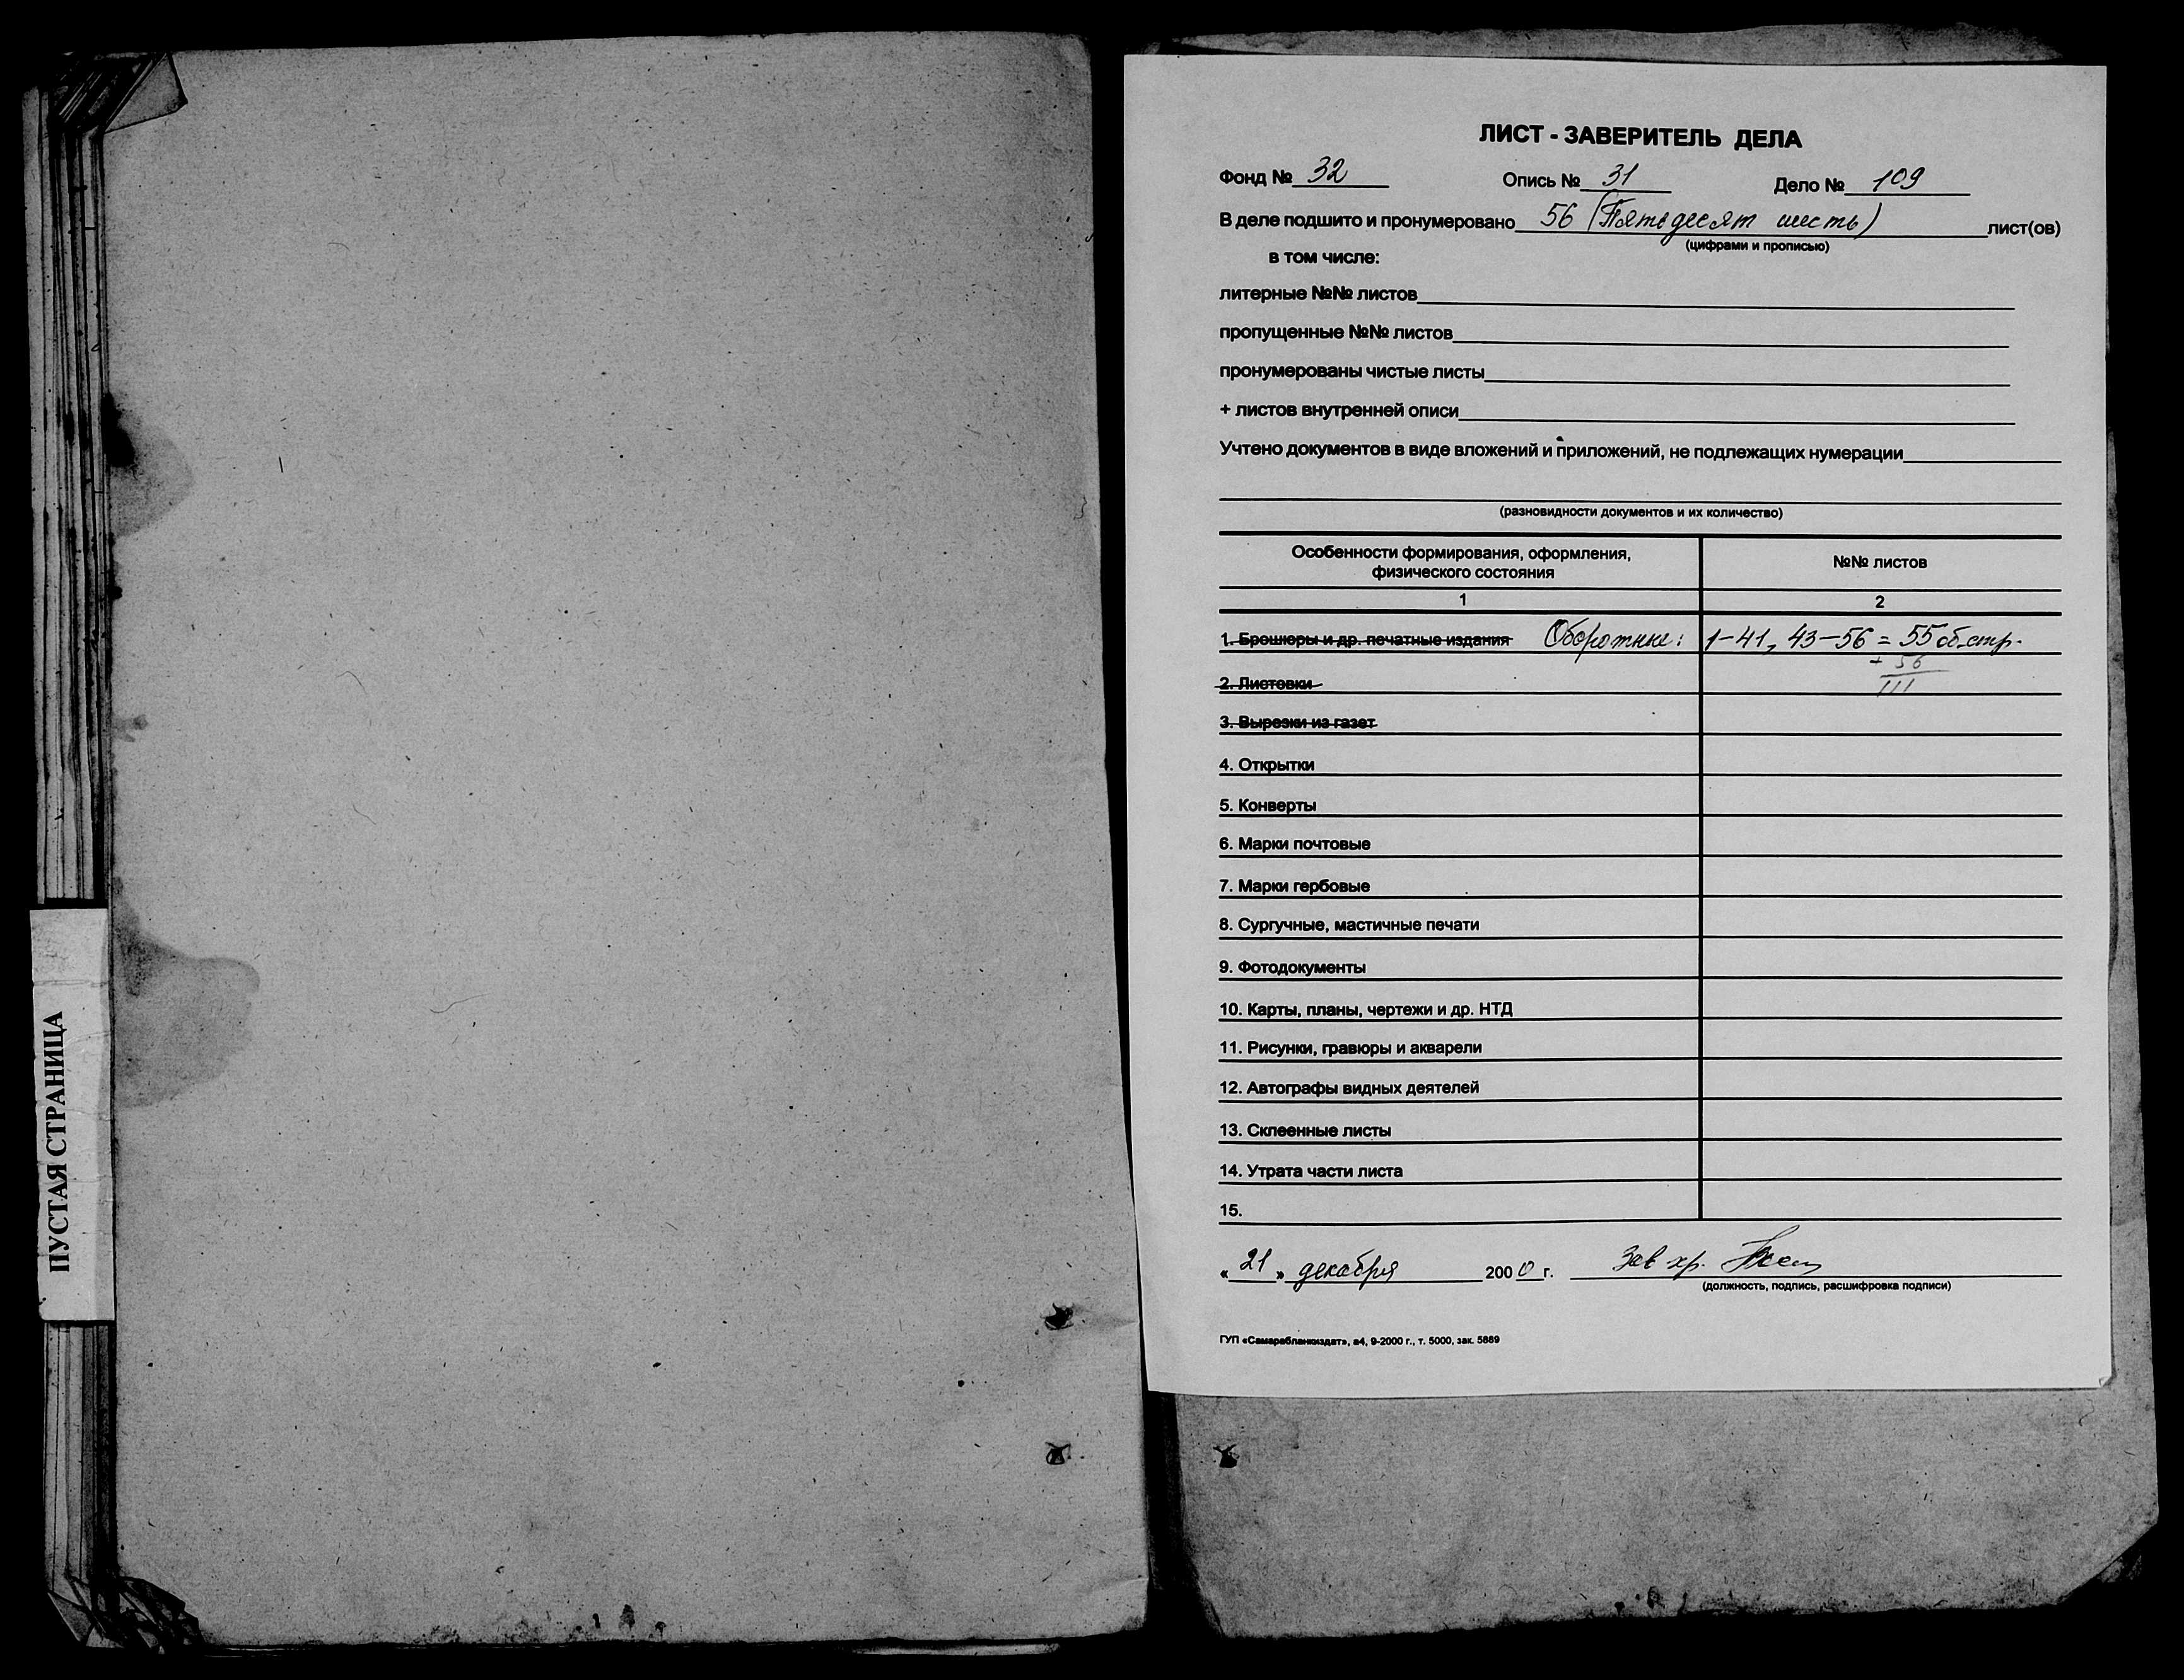 ПУСТАЯ СТРАНИЦА
ЛИСТ - ЗАВЕРИТЕЛЬ ДЕЛА
Фонд № 32 Опись № 31 Дело № 109
В деле подшито и пронумеровано 56 (Пятьдесят шесть) лист(ов)
(цифрами и прописью)
в том числе:
литерные №№ листов
пропущенные №№ листов
пронумерованы чистые листы
+ листов внутренней описи
Учтено документов в виде вложений и приложений, не подлежащих нумерации
(разновидности документов и их количество)
Особенности формирования, оформления,
физического состояния
№№ листов
1 2
1. Брошюры и др. печатные издания Оборотные: 1-41, 43-56 = 55 об.стр.
+ 56
111
2. Листовки
3. Вырезки из газет
4. Открытки
5. Конверты
6. Марки почтовые
7. Марки гербовые
8. Сургучные, мастичные печати
9. Фотодокументы
10. Карты, планы, чертежи и др. НТД
11. Рисунки, гравюры и акварели
12. Автографы видных деятелей
13. Склеенные листы
14. Утрата части листа
15.
« 21 » декабря 2000 г. Зав хр.
(должность, подпись, расшифровка подписи)
ГУП «Самарабланкиздат», а4, 9-2000 г., т. 5000, зак. 5889